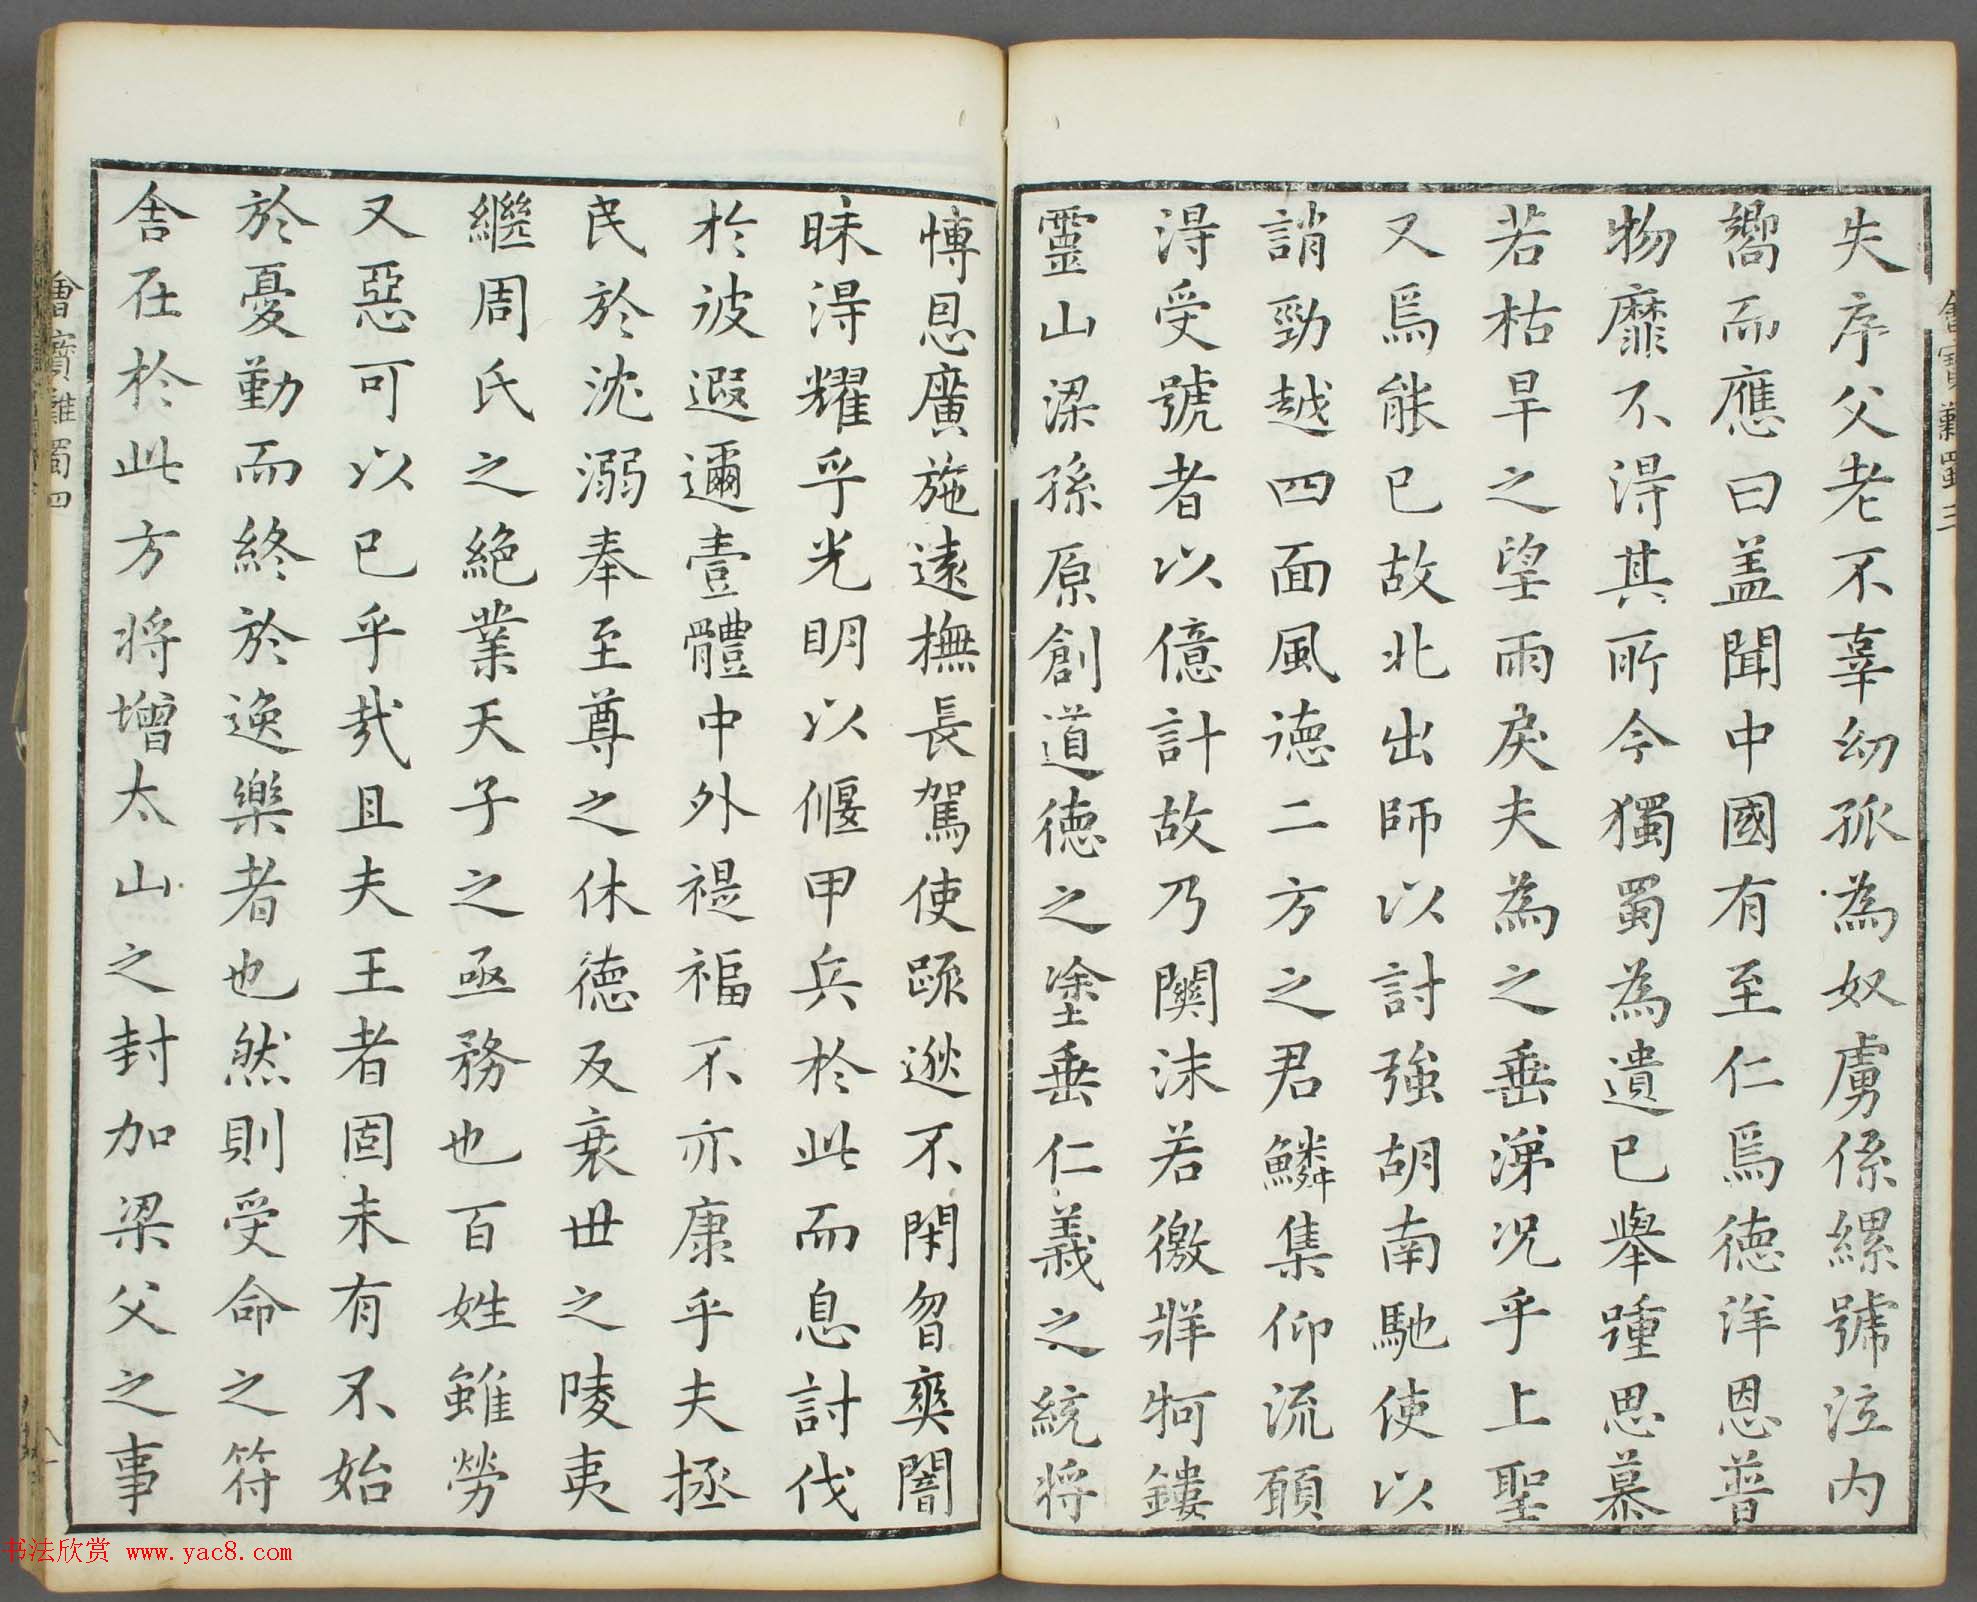 失序父老不辜幼孤為奴虜係縲號泣內
嚮而應曰盖聞中國有至仁焉德洋恩普
物靡不得其所今獨蜀為遺已舉踵思慕
若枯旱之望雨戾夫為之垂涕況乎上聖
又焉能已故北出師以討強胡南馳使以
誚勁越四面風德二方之君鱗集仰流願
得受號者以億計故乃關沬若徼牂牁鏤
靈山梁孫原創道德之塗垂仁義之統將
博恩廣施遠撫長駕使疏逖不閉曶爽闇
昧得耀乎光明以偃甲兵於此而息討伐
於彼遐邇壹體中外禔福不亦康乎夫拯
民於沈溺奉至尊之休德反衰世之陵夷
繼周氏之絕業天子之亟務也百姓雖勞
又惡可以已乎哉且夫王者固未有不始
於憂勤而終於逸樂者也然則受命之符
舍在於此方將增太山之封加梁父之事
難蜀三
會寶難蜀四
书法欣赏 www.yac8.com